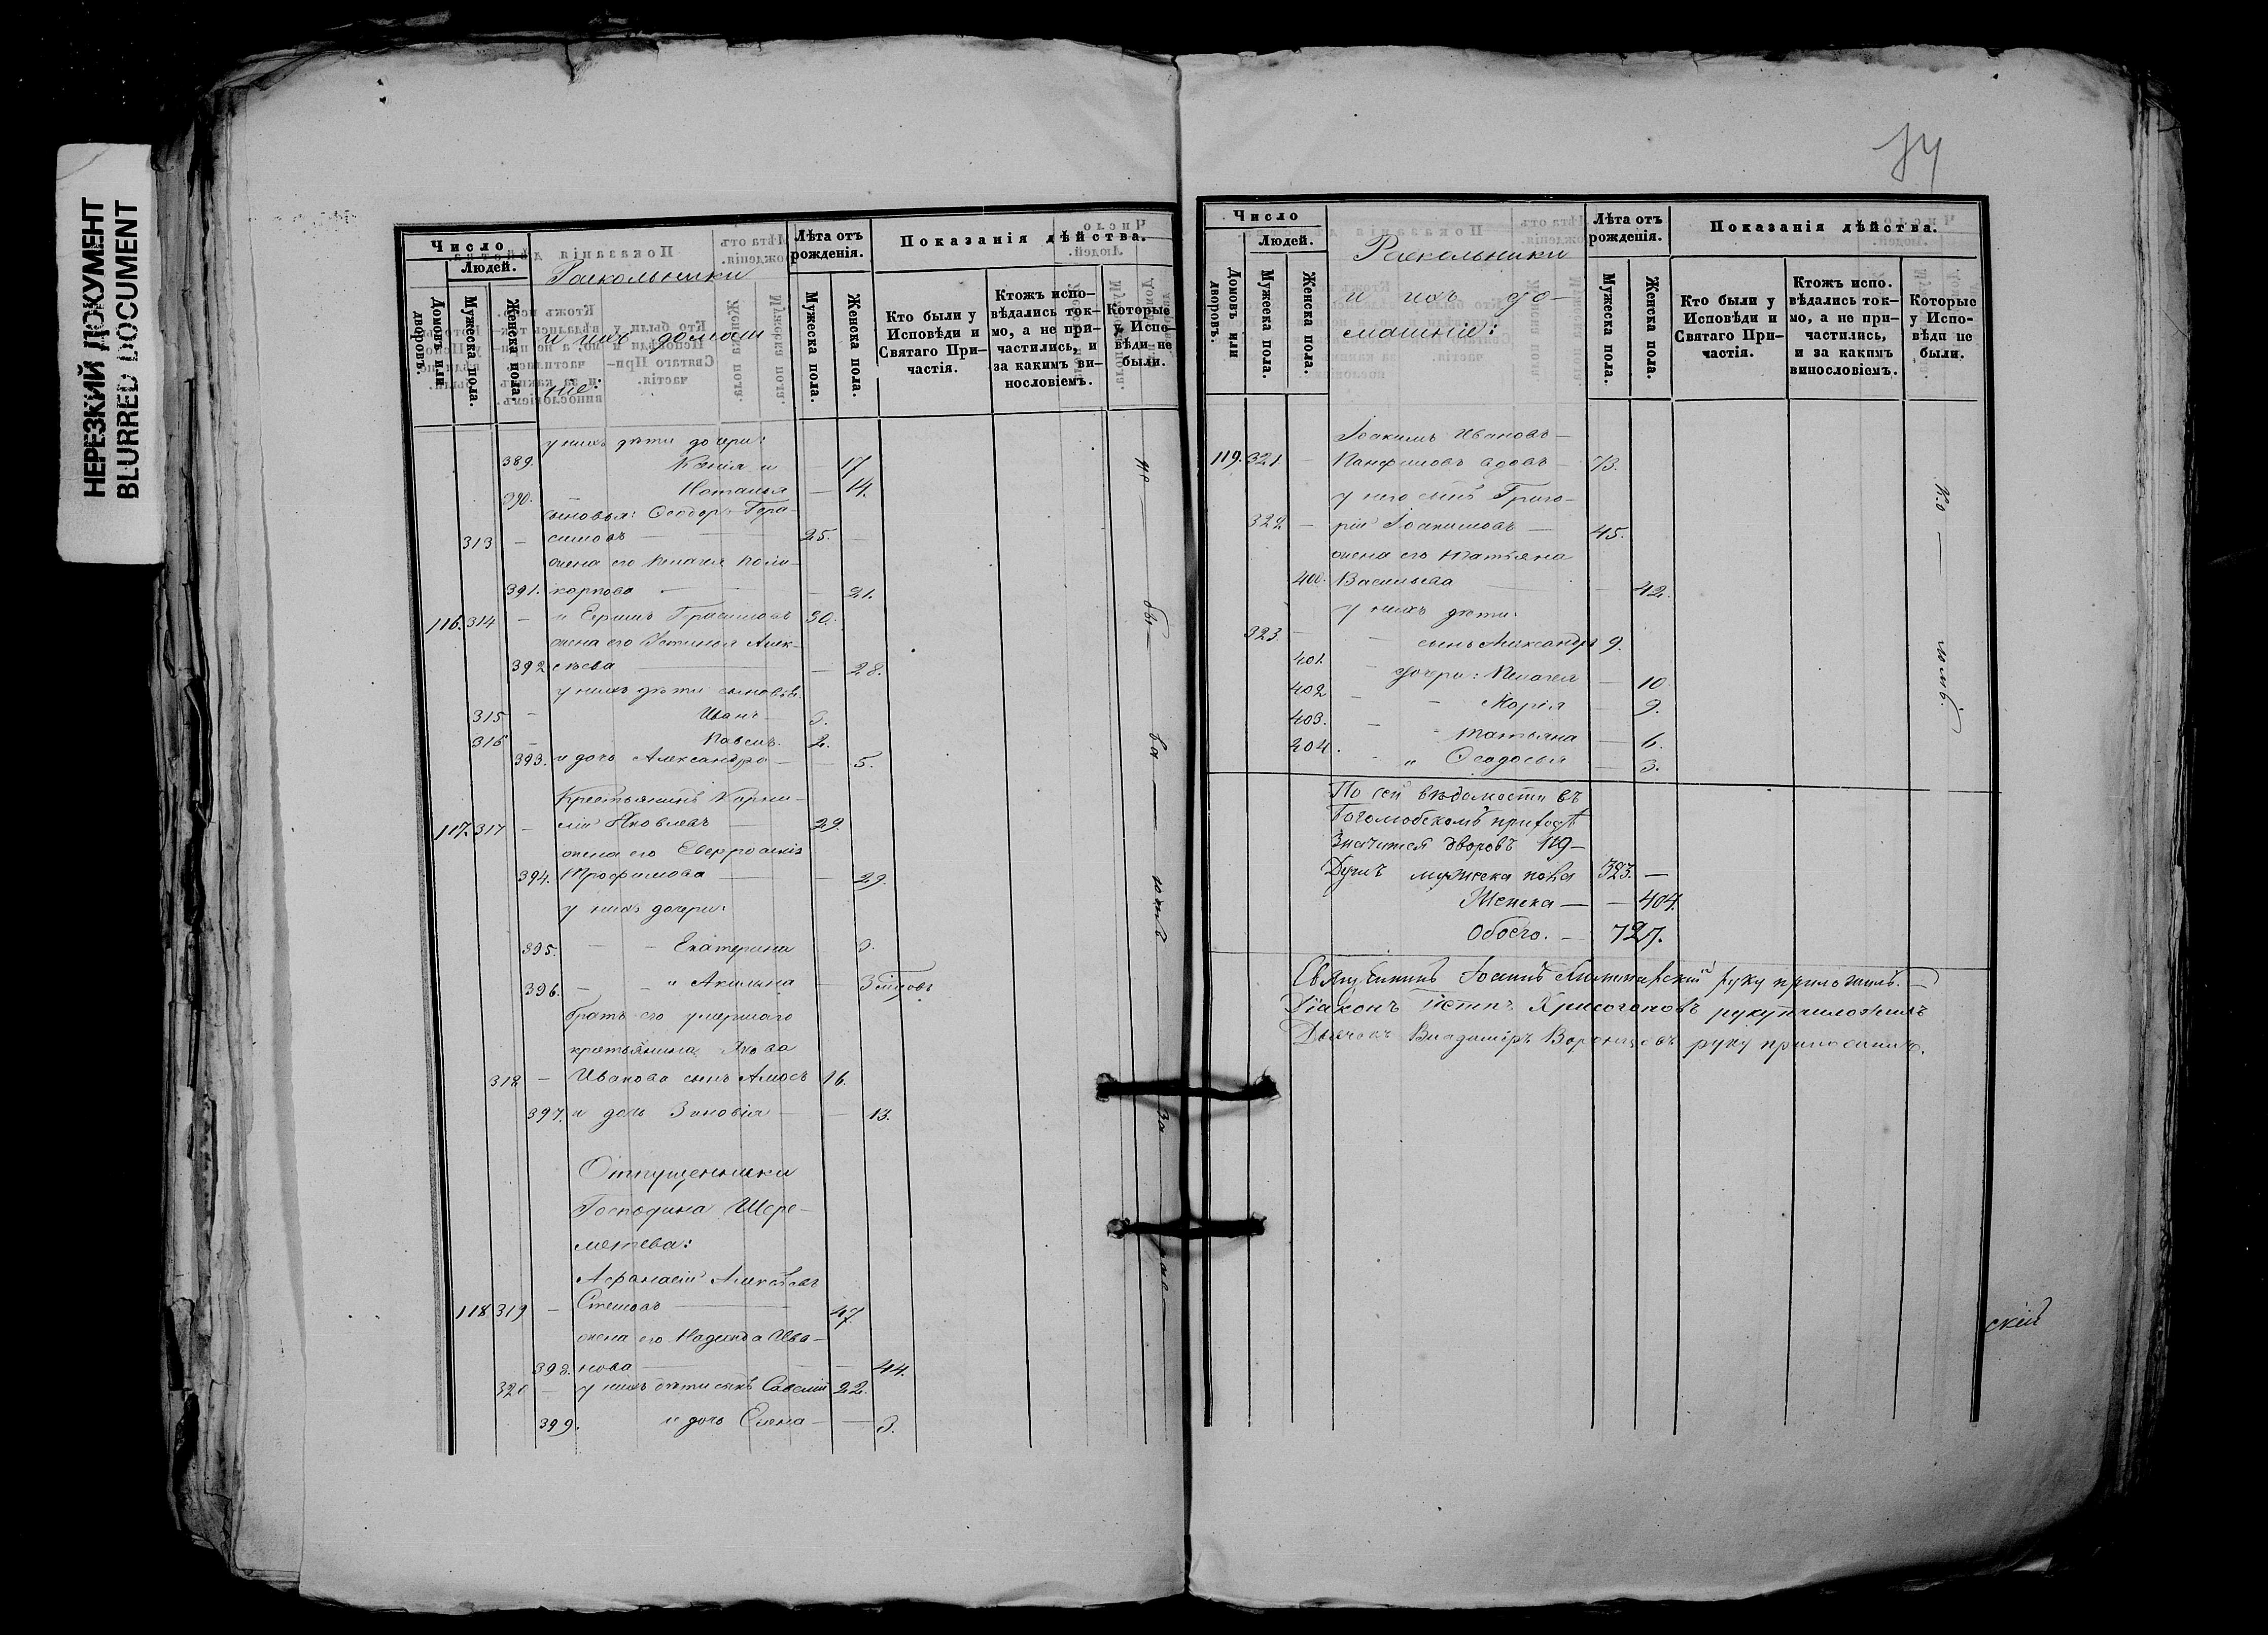 НЕРЕЗКИЙ ДОКУМЕНТ
BLURRED DOCUMENT
Число
Людей.
Домовъ или дворовъ.
Мужеска пола.
Женска пола.
Раскольники
и ихъ домаш
ніе:
Лѣта отъ рожденія.
Мужеска пола.
Женска пола.
Показанія дѣйства.
Кто были у Исповѣди и Святаго При-частія.
Ктожъ испо-вѣдались ток-мо, а не при-частились, и за какимъ ви-нословіемъ.
Которые у Испо-вѣди не были.
у нихъ дѣти дочери:
389. Ксенія и 17
390. — Наталья — 14.
сыновья: Ѳеодоръ Гера-
313 — симовъ — 25. —
жена его Пелагея Поли-
391. карпова — — 21.
116. 314 — и Ефимъ Герасимовъ 30.
жена его Устинья Алек-
392 сѣева — — 28.
у нихъ дѣти сыновья
315 — Иванъ
316 — Павелъ. 2.
393. и дочь Александра — — 5.
Крестьянинъ Корни-
117. 317 — лій Яковлевъ — 29.
жена его Евфросинія
394. Трофимова — — 29.
у нихъ дочери:
395. — — Екатерина
396. — — " Акилина —
братъ его умершаго
крестьянина Якова
318 — Иванова сынъ Амосъ 16.
397. и дочь Зиновія — — 13.
Отпущенники
Господина Шере-
метева:
Аѳанасій Алексѣевъ
118 319 — 47
жена его Надежда Ива-
398. нова — — 44.
320 — у нихъ дѣти сынъ Савелій 22.
399. и дочь Елена — —
74
Число
Людей.
Домовъ или дворовъ.
Мужеска пола.
Женска пола.
Раскольники
и ихъ до-
машніе:
Лѣта отъ рожденія.
Мужеска пола.
Женска пола.
Показанія дѣйства.
Кто были у Исповѣди и Святаго При-частія.
Ктожъ испо-вѣдались ток-мо, а не при-частились, и за какимъ винословіемъ.
Которые у Испо-вѣди не были.
Іоакимъ Ивановъ —
119. 321 — Панфиловъ вдовъ — 73.
у него сынъ Григо-
322 — рій Іоакимовъ — 45.
жена его Татьяна
400. Васильева — — 42.
у нихъ дѣти:
323 — — сынъ Александръ 9.
401. — дочери: Пелагея — 10
402 — — Марія — 9.
403. — " Татьяна — 6.
204. — " Ѳеодосья — 3.
По сей вѣдомости въ
Боголюбскомъ приходѣ
Значится дворовъ 119 —
Душъ мужеска пола 323. —
Женска — — 404.
Обоего. — 727.
Священникъ Іоаннъ руку приложилъ. —
Діаконъ руку приложилъ
Дьячекъ Владиміръ Воронцовъ руку приложилъ.
скій